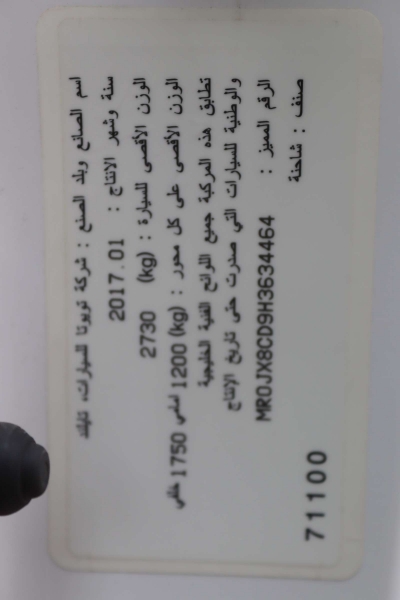 اسم الصانع وبلد الصنع : شركة تويوتا للسيارات، تايلند
سنة وشهر الانتاج : 2017.01
الوزن الأقصى للسيارة : (kg) 2730
الوزن الأقصى على كل محور : (kg) 1200 امامي 1750 خلفي
تطابق هذه المركبة جميع اللوائح الفنية الخليجية
والوطنية للسيارات التي صدرت حتى تاريخ الإنتاج
الرقم المميز : MR0JX8CD9H3634464
صنف : شاحنة
71100